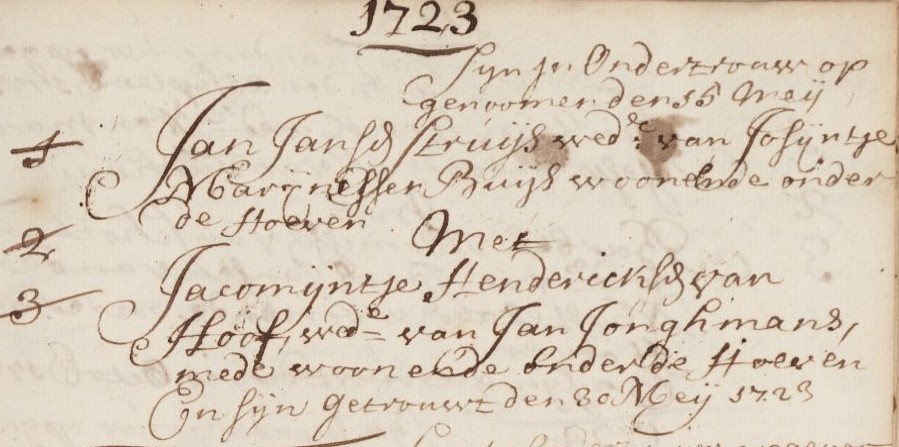 1723
Syn in Ondertrouw op
genoomen den 15 Meij
1 Jan Jansd Struijs wede. van Josijntje
Marijnessen Buijs woonende onder
de Hoeven
Met
2
Jacomijntje Hendericksd van
3 Hoof, wede van Jan Jonghmans,
mede woonende onder de Hoeven
En sijn getrouwt den 30 Meij 1723